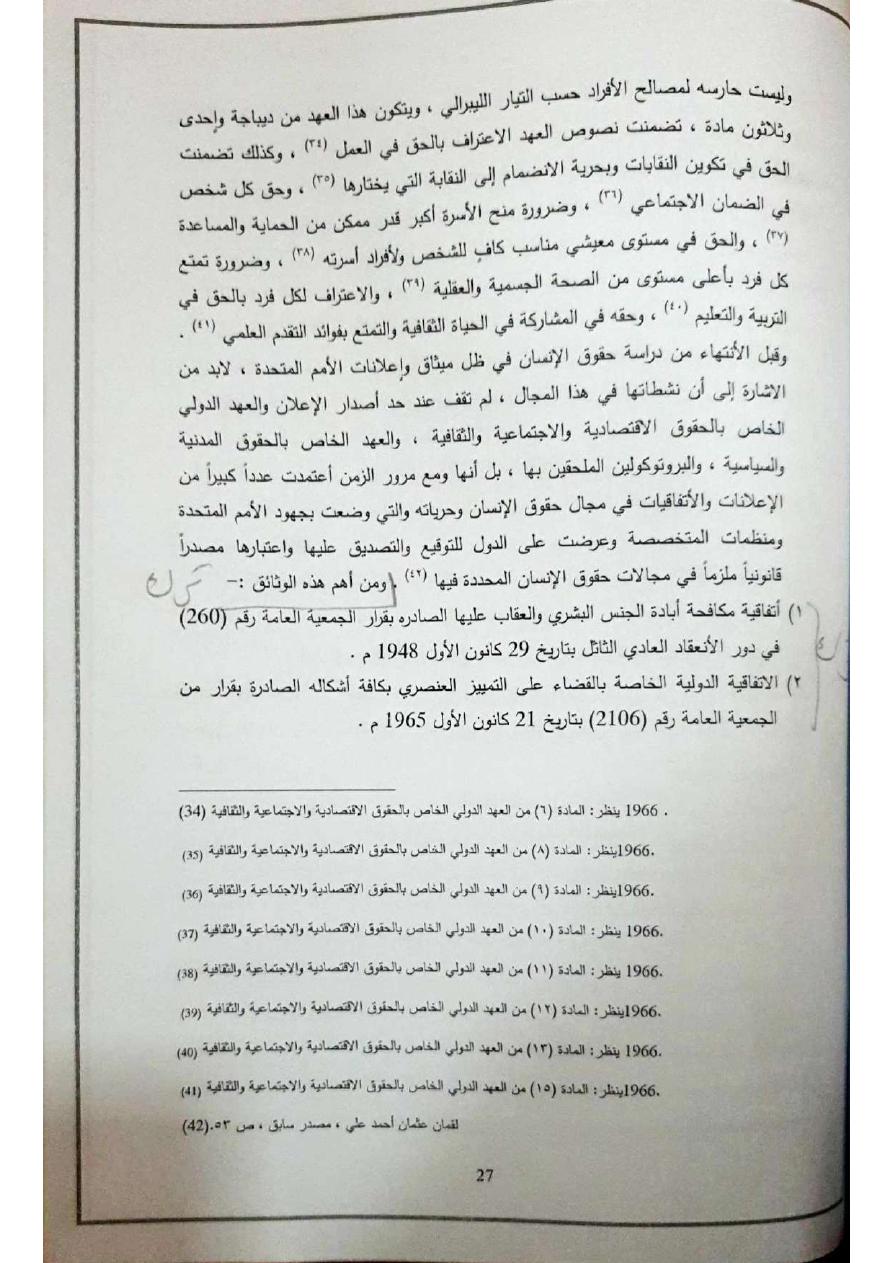 وليست حارسه لمصالح الأفراد حسب التيار الليبرالي ، ويتكون هذا العهد من ديباجة وإحدى
وثلاثون مادة ، تضمنت نصوص العهد الاعتراف بالحق في العمل (٣٤) ، وكذلك تضمنت
الحق في تكوين النقابات وبحرية الانضمام إلى النقابة التي يختارها (٣٥) ، وحق كل شخص
في الضمان الاجتماعي (٣٦) ، وضرورة منح الأسرة أكبر قدر ممكن من الحماية والمساعدة
(٣٧) ، والحق في مستوى معيشي مناسب كافٍ للشخص ولأفراد أسرته (٣٨) ، وضرورة تمتع
كل فرد بأعلى مستوى من الصحة الجسمية والعقلية (٣٩) ، والاعتراف لكل فرد بالحق في
التربية والتعليم (٤٠) ، وحقه في المشاركة في الحياة الثقافية والتمتع بفوائد التقدم العلمي (٤١) .
وقبل الأنتهاء من دراسة حقوق الإنسان في ظل ميثاق وإعلانات الأمم المتحدة ، لابد من
الاشارة إلى أن نشطاتها في هذا المجال ، لم تقف عند حد أصدار الإعلان والعهد الدولي
الخاص بالحقوق الاقتصادية والاجتماعية والثقافية ، والعهد الخاص بالحقوق المدنية
والسياسية ، والبروتوكولين الملحقين بها ، بل أنها ومع مرور الزمن أعتمدت عدداً كبيراً من
الإعلانات والأتفاقيات في مجال حقوق الإنسان وحرياته والتي وضعت بجهود الأمم المتحدة
ومنظمات المتخصصة وعرضت على الدول للتوقيع والتصديق عليها واعتبارها مصدراً
قانونياً ملزماً في مجالات حقوق الإنسان المحددة فيها (٤٢) . ومن أهم هذه الوثائق :–
١) أتفاقية مكافحة أبادة الجنس البشري والعقاب عليها الصادره بقرار الجمعية العامة رقم (260)
في دور الأنعقاد العادي الثاثل بتاريخ 29 كانون الأول 1948 م .
٢) الاتفاقية الدولية الخاصة بالقضاء على التمييز العنصري بكافة أشكاله الصادرة بقرار من
الجمعية العامة رقم (2106) بتاريخ 21 كانون الأول 1965 م .
. 1966 ينظر : المادة (٦) من العهد الدولي الخاص بالحقوق الاقتصادية والاجتماعية والثقافية (34)
.1966ينظر : المادة (٨) من العهد الدولي الخاص بالحقوق الاقتصادية والاجتماعية والثقافية (35)
.1966ينظر : المادة (٩) من العهد الدولي الخاص بالحقوق الاقتصادية والاجتماعية والثقافية (36)
.1966 ينظر : المادة (١٠) من العهد الدولي الخاص بالحقوق الاقتصادية والاجتماعية والثقافية (37)
.1966 ينظر : المادة (١١) من العهد الدولي الخاص بالحقوق الاقتصادية والاجتماعية والثقافية (38)
.1966ينظر : المادة (١٢) من العهد الدولي الخاص بالحقوق الاقتصادية والاجتماعية والثقافية (39)
.1966 ينظر : المادة (١٣) من العهد الدولي الخاص بالحقوق الاقتصادية والاجتماعية والثقافية (40)
.1966ينظر : المادة (١٥) من العهد الدولي الخاص بالحقوق الاقتصادية والاجتماعية والثقافية (41)
لقمان عثمان أحمد علي ، مصدر سابق ، ص ٥٣.(42)
27